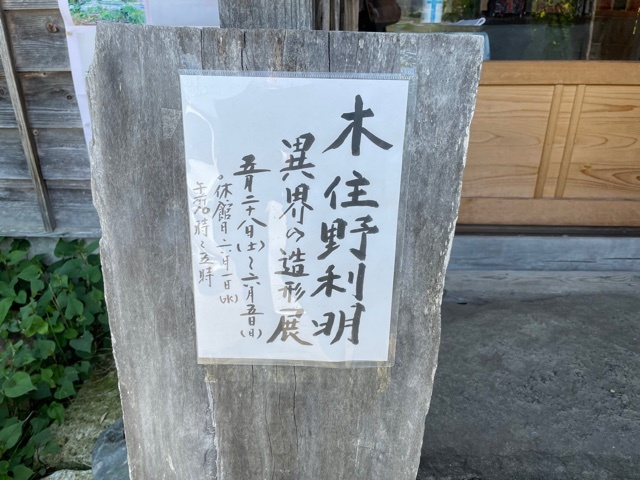 木住野利明
異界の造形展
五月二十八日(土)〜六月五日(日)
○休館日 六月一日(水)